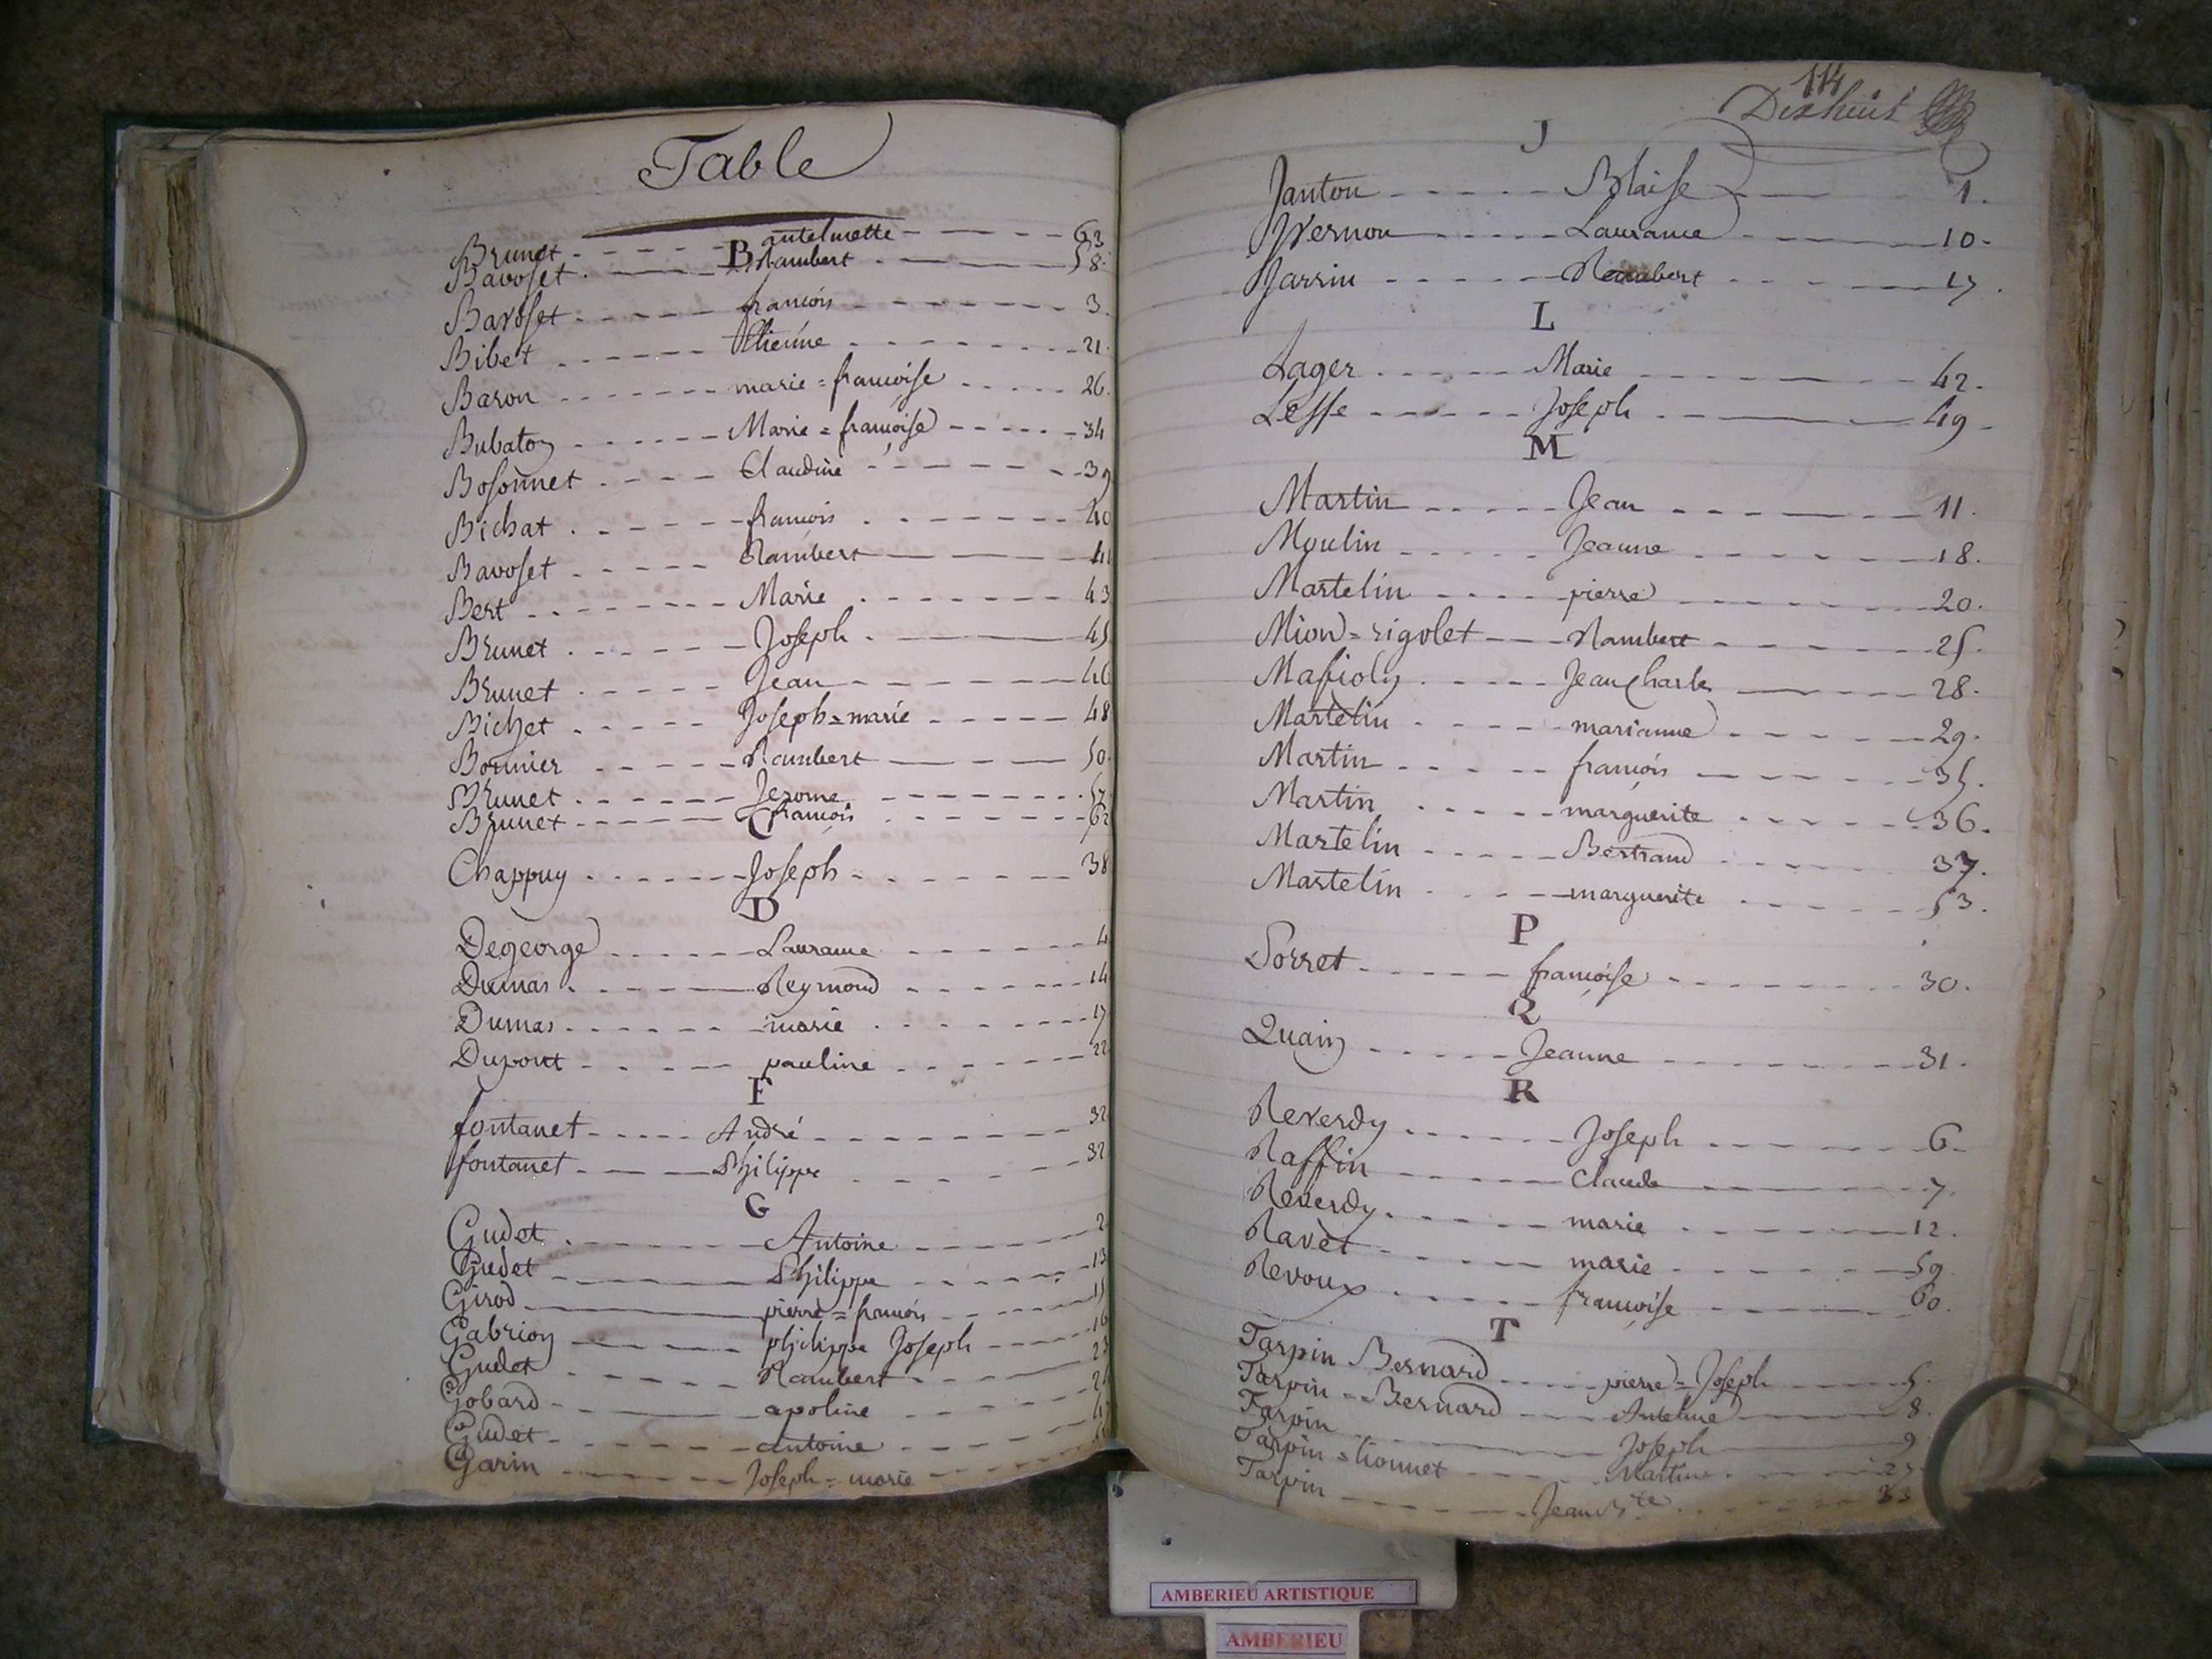 Table
Brunet - - - - antelmette - - - - 63
B
Bavoset - - - - Rambert - - - - 58.
Bavoset - - - - francois - - - - 3.
Bibet - - - - Etienne - - - - 21.
Baron - - - - marie = francoise - - - - 26.
Bubaton - - - - Marie = francoise - - - - 34
Bosonnet - - - - Claudine - - - - 39
Bichat - - - - francois - - - - 40
Bavoset - - - - Rambert - - - - 41
Bert - - - - Marie - - - - 43
Brunet - - - - Joseph - - - - 45
Brunet - - - - Jean - - - - 46
Bichet - - - - Joseph = marie - - - - 48
Bonnier - - - - Rambert - - - - 50.
Brunet - - - - Jerome - - - - 57
Brunet - - - - françois - - - - 62
C
Chappuy - - - - Joseph - - - - 38
D
Degeorge - - - - Laurance - - - - 4
Dumas - - - - Reymond - - - - 14
Dumas - - - - marie - - - - 17
Dupont - - - - pauline - - - - 22
F
fontanet - - - - André - - - - 32
fontanet - - - - Philippe - - - - 32
G
Gudet - - - - Antoine - - - - 2
Gudet - - - - Philippe - - - - 13
Girod - - - - pierre = francois - - - - 15
Gabrion - - - - philippe Joseph - - - - 16
Gudet - - - - Rambert - - - - 23
Gobard - - - - apoline - - - -
Gudet - - - - antoine - - - -
Garin - - - - Joseph = marie - - - -
114
Dixhuit
J
Janton - - - - Blaise - - - - 1.
Jvernon - - - - Laurance - - - - 10.
Jarrin - - - - Rambert - - - - 17.
L
Lager - - - - Marie - - - - 42.
Lesse - - - - Joseph - - - - 49
M
Martin - - - - Jean - - - - 11.
Moulin - - - - Jeanne - - - - 18.
Martelin - - - - pierre - - - - 20.
Mion = rigolet - - - - Rambert - - - - 25.
Massioly - - - - Jean Charles - - - - 28.
Martelin - - - - marianne - - - - 29.
Martin - - - - françois - - - - 35.
Martin - - - - marguerite - - - - 36.
Martelin - - - - Bertrand - - - - 37.
Martelin - - - - marguerite - - - - 53.
P
Porret - - - - françoise - - - - 30.
Q
Quain - - - - Jeanne - - - - 31.
R
Reverdy - - - - Joseph - - - - 6.
Raffin - - - - Claude - - - - 7.
Reverdy - - - - marie - - - - 12.
Ravet - - - - marie - - - - 59
Revoux - - - - françoise - - - - 60.
T
Tarpin Bernard - - - - pierre = Joseph - - - - 5.
Tarpin = Bernard - - - - Antelme - - - - 8.
Tarpin - - - - Joseph - - - - 9
Tarpin = lionnet - - - - Martin - - - -
Tarpin - - - - Jean Bte - - - - 33
AMBERIEU ARTISTIQUE
AMBERIEU